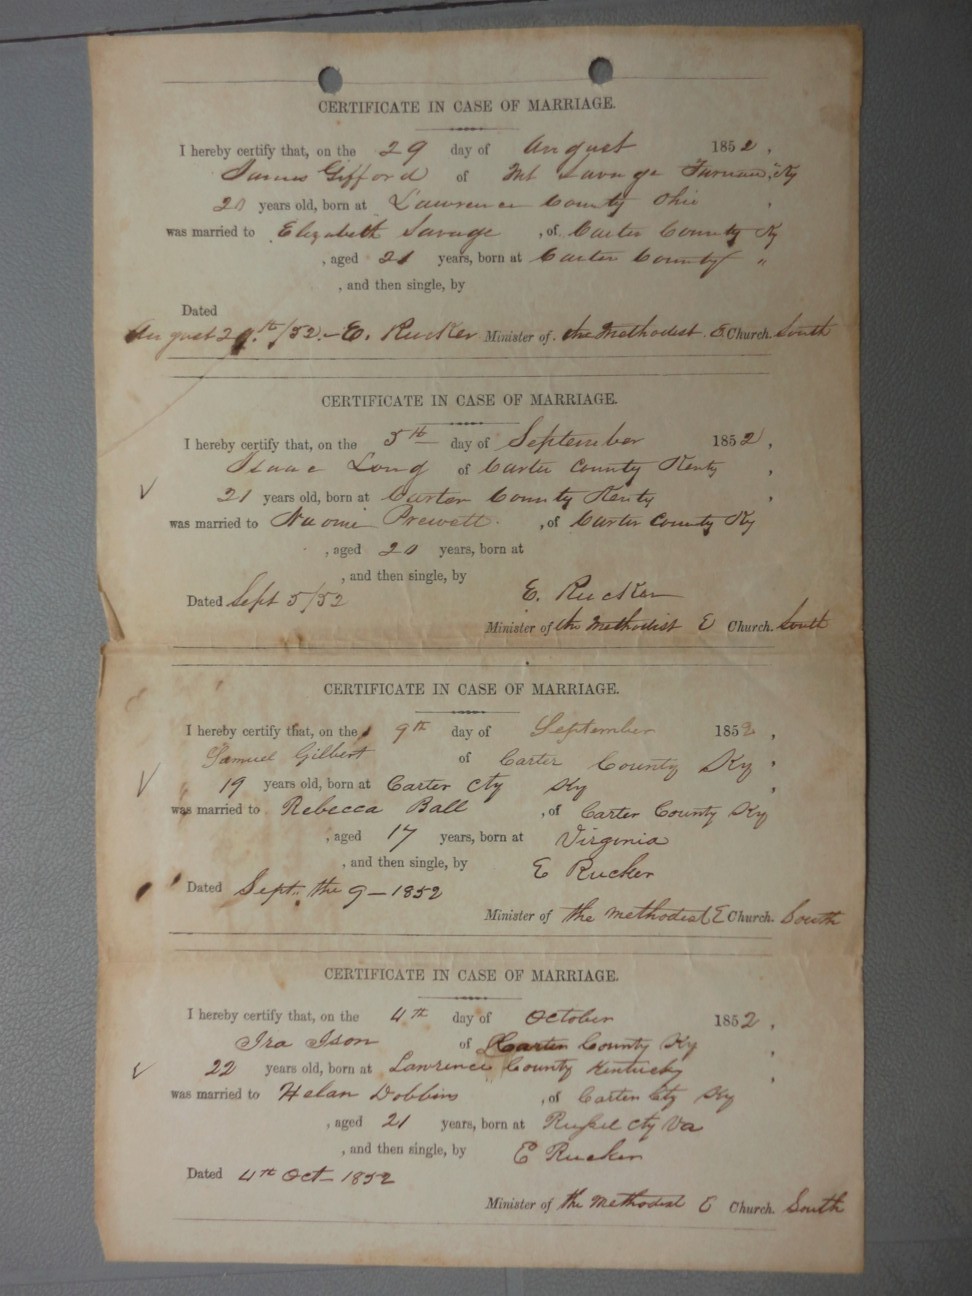 CERTIFICATE IN CASE OF MARRIAGE.
I hereby certify that, on the 29 day of August 1852,
James Gifford of Mt Savage Furnace, Ky
21 years old, born at Lawrence County Ohio,
was married to Elizabeth Savage, of Carter County Ky
, aged 21 years, born at Carter County "
, and then single, by
Dated
August 29th/52.- E. Rucker Minister of the Methodist E Church. South
CERTIFICATE IN CASE OF MARRIAGE.
I hereby certify that, on the 5th day of September 1852,
Isaac Long of Carter County Kenty,
21 years old, born at Carter County Kenty,
was married to Naomi Prewett, of Carter County Ky
, aged 20 years, born at
, and then single, by
Dated Sept 5/52 E. Rucker
Minister of the Methodist E Church. South
CERTIFICATE IN CASE OF MARRIAGE.
I hereby certify that, on the 9th day of September 1852,
Samuel Gilbert of Carter County Ky,
19 years old, born at Carter cty Ky,
was married to Rebecca Ball, of Carter County Ky
, aged 17 years, born at Virginia
, and then single, by E Rucker
Dated Sept. the 9-1852
Minister of the methodist E Church. South
CERTIFICATE IN CASE OF MARRIAGE.
I hereby certify that, on the 4th day of October 1852,
Ira Ison of Carter County Ky,
22 years old, born at Lawrence County Kentucky,
was married to Helan Dobbins, of Carter Cty Ky
, aged 21 years, born at Russel cty Va
, and then single, by E Rucker
Dated 4th Oct- 1852
Minister of the Methodist E Church. South